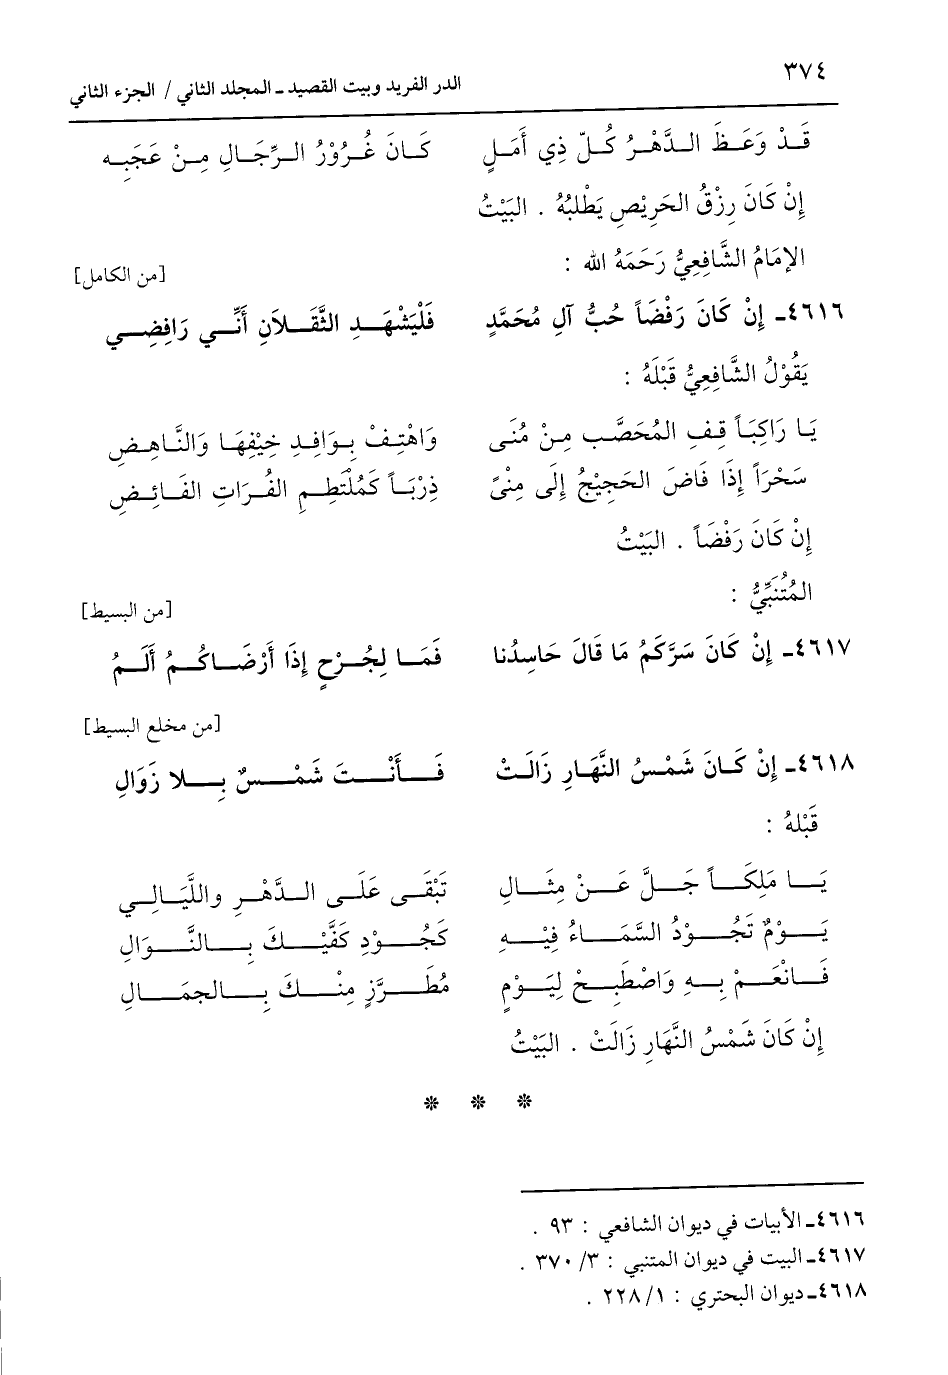 ٣٧٤
الدر الفريد وبيت القصيد ـ المجلد الثاني / الجزء الثاني
قَدْ وَعَظَ الدَّهْرُ كُلّ ذِي أَمَلٍ كَانَ غُرُوْرُ الرِّجَالِ مِنْ عَجَبِه
إِنْ كَانَ رِزْقُ الحَرِيْصِ يَطْلبُهُ . البَيْتُ
الإمَامُ الشَّافِعِيُّ رَحَمَهُ الله :
[من الكامل]
٤٦١٦ـ إِنْ كَانَ رَفْضَاً حُبُّ آلِ مُحَمَّدٍ فَلْيَشْهَدِ الثَّقَلاَنِ أَنِّي رَافِضِي
يَقُوْلُ الشَّافِعِيُّ قَبْلَهُ :
يَا رَاكِبَاً قِفِ المُحَصَّبِ مِنْ مُنَى وَاهْتِفْ بِوَافِدِ خِيْفِهَا وَالنَّاهِضِ
سَحْرَاً إِذَا فَاضَ الحَجِيْجُ إِلَى مِنْىً ذِرْبَاً كَمُلْتَطِمِ الفُرَاتِ الفَائِضِ
إِنْ كَانَ رَفْضَاً . البَيْتُ
المُتُنَبِّيُّ :
[من البسيط]
٤٦١٧ـ إِنْ كَانَ سَرَّكَمُ مَا قَالَ حَاسِدُنا فَمَا لِجُرْحٍ إِذَا أَرْضَاكُمُ أَلَمُ
[من مخلع البسيط]
٤٦١٨ـ إِنْ كَانَ شَمْسُ النَّهَارِ زَالَتْ فَأَنْتَ شَمْسٌ بِلا زَوَالِ
قَبْلهُ :
يَا مَلِكَاً جَلَّ عَنْ مِثَالِ تَبْقَى عَلَى الدَّهْرِ واللَّيَالِي
يَوْمٌ تَجُوْدُ السَّمَاءُ فِيْهِ كَجُوْدِ كَفَّيْكَ بِالنَّوَالِ
فَانْعَمْ بِهِ وَاصْطَبِحْ لِيَوْمٍ مُطَرَّزٍ مِنْكَ بِالجمَالِ
إِنْ كَانَ شَمْسُ النَّهَارِ زَالَتْ . البَيْتُ
* * *
٤٦١٦ـ الأبيات في ديوان الشافعي : ٩٣ .
٤٦١٧ـ البيت في ديوان المتنبي : ٣/ ٣٧٠ .
٤٦١٨ـ ديوان البحتري : ١/ ٢٢٨ .